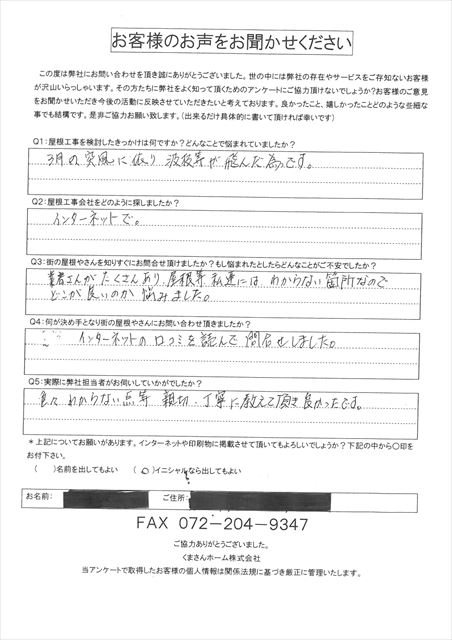 お客様のお声をお聞かせください
この度は弊社にお問い合わせを頂き誠にありがとうございました。世の中には弊社の存在やサービスをご存知ないお客様
が沢山いらっしゃいます。その方たちに弊社をよく知って頂くためのアンケートにご協力頂けないでしょうか?お客様のご意見
をお聞かせいただき今後の活動に反映させていただきたいと考えております。良かったこと、嬉しかったことどのような些細な
事でも結構です。是非ご協力お願い致します。(出来るだけ具体的に書いて頂ければ幸いです)
Q1:屋根工事を検討したきっかけは何ですか?どんなことで悩まれていましたか?
3月の突風に依り波板等が飛んだ為です。
Q2:屋根工事会社をどのように探しましたか?
インターネットで。
Q3:街の屋根やさんを知りすぐにお問合せ頂けましたか?もし悩まれたとしたらどんなことがご不安でしたか?
業者さんがたくさんあり、屋根等私達にはわからない箇所なので
どこが良いのか悩みました。
Q4:何が決め手となり街の屋根やさんにお問い合わせ頂きましたか?
インターネットの口コミを読んで問合せしました。
Q5:実際に弊社担当者がお伺いしていかがでしたか?
色々わからない点等親切、丁寧に教えて頂き良かったです。
*上記についてお願いがあります。インターネットや印刷物に掲載させて頂いてもよろしいでしょうか?下記の中から〇印を
お付下さい。
( )名前を出してもよい (○)イニシャルなら出してもよい
お名前: ご住所:
FAX 072-204-9347
ご協力ありがとうございました。
くまさんホーム株式会社
当アンケートで取得したお客様の個人情報は関係法規に基づき厳正に管理いたします。